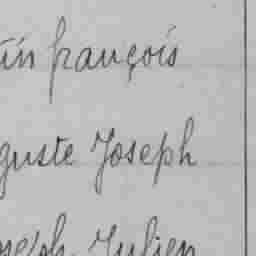 tin françois
guste Joseph
oseph Julien